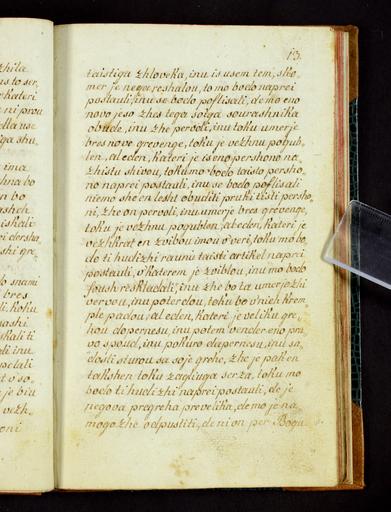 zhila
us to ser,
kateri
ni prou
ella use
iga shu,
ima
hna bo
n bo
asheh
ishali
ci dersha,
shi gre,
snami
bres
li. Koku
nashi,
skali ti
di inu
pelali
t v so,
je biu
vezh,
oni
13.
taistiga zhloveka, inu is usem tem, sko,
mer je negvereshalou, to mo bodo naprei
postauli, inu se bodo poflisali, de mo eno
novo jeso zhes tega soiga sourashnika
obude, inu zhe pervoli, inu toku umerje
bres nove grevenge, toku je vezhnu pogub,
len, al eden, kateri je is eno pershono na
zhistu shivou, toku mo bodo taisto persho,
no naprei postauli, inu se bodo poflisali
niemo she en lesht obuditi pruki tisti persho,
ni, zhe on pervoli, inu umerje bres grevenge,
toku je vezhnu pogublen, al eden, kateri je
vezhkrat en zvibou imou v veri, toku mo bo,
do ti hudizhi raunu taisti artikel naprei
postauli, v katerem je zviblou, inu mo bodo
foush reskladali, inu zhe bo ta umerjozhi
vervou, inu poterdou, toku bo v nieh krem,
ple padou, al eden, kateri je veliku gre,
hou dopernesu, inu potem vender eno pra,
vo spoud, inu pokuro dopernesu, inu sa,
dosti sturou sa soje grehe, zhe je pak en
takshen toku zagliuga serza, toku mo
bodo ti hudizhi naprei postauli, de je
negova pregreha prevelika, de mo je na,
mogozhe odpustiti, de ni on per Bogu